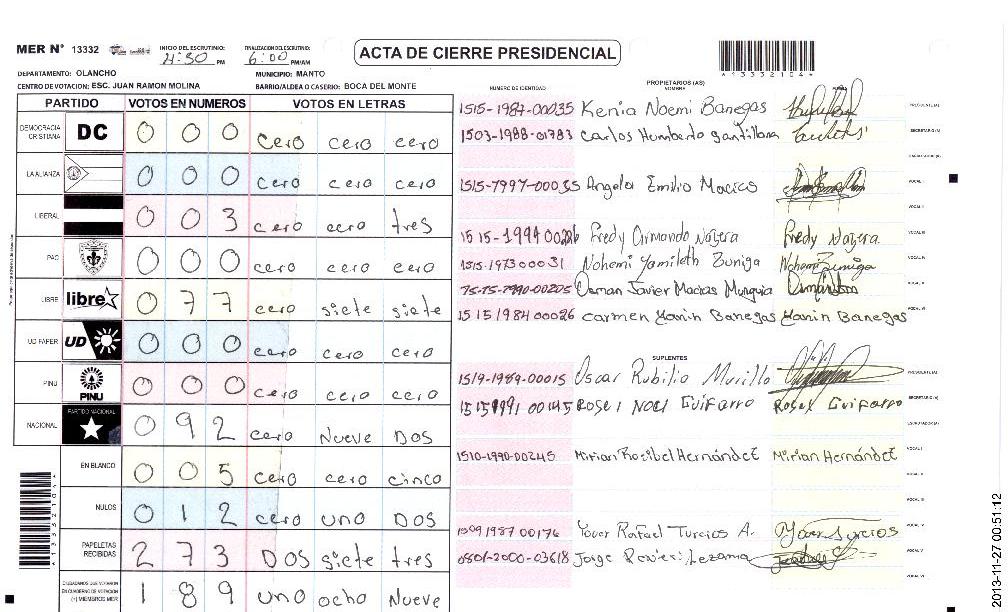 MER N° 13332 INICIO DEL ESCRUTINIO: 4:30 PM FINALIZACION DEL ESCRUTINIO: 6:00 PM/AM
ACTA DE CIERRE PRESIDENCIAL
DEPARTAMENTO: OLANCHO MUNICIPIO: MANTO
CENTRO DE VOTACION: ESC. JUAN RAMON MOLINA BARRIO/ALDEA O CASERIO: BOCA DEL MONTE
PARTIDO VOTOS EN NUMEROS VOTOS EN LETRAS
DEMOCRACIA CRISTIANA DC 0 0 0 cero cero cero
LA ALIANZA 0 0 0 cero cero cero
LIBERAL 0 0 3 cero cero tres
PAC 0 0 0 cero cero cero
LIBRE libre 0 7 7 cero siete siete
UD FAPER UD 0 0 0 cero cero cero
PINU PINU 0 0 0 cero cero cero
NACIONAL PARTIDO NACIONAL 0 9 2 cero Nueve DOS
EN BLANCO 0 0 5 cero cero cinco
NULOS 0 1 2 cero uno DOS
PAPELETAS RECIBIDAS 2 7 3 DOS siete tres
CIUDADANOS QUE VOTARON EN CUADERNO DE VOTACION (+) MIEMBROS MER 1 8 9 uno ocho Nueve
NUMERO DE IDENTIDAD PROPIETARIOS (AS) NOMBRE FIRMA
1515-1987-00035 Kenia Noemi Banegas PRESIDENTE (A)
1503-1988-01783 Carlos Humberto Santillana SECRETARIO (A)
ESCRUTADOR (A)
Angela Emilio Macias VOCAL I
VOCAL II
Fredy Armando Najera Fredy Najera VOCAL III
1515-1973 00031 Nohemi Yamileth Zuniga Nohemi Zuniga VOCAL IV
Osman Javier Macias Munguia VOCAL V
1515 1984 00026 Carmen Yanin Banegas Yanin Banegas VOCAL VI
SUPLENTES
1519-1989-00015 Oscar Rubilio Murillo PRESIDENTE (A)
1515 1991 00145 Rosel Noel Guifarro Rosel Guifarro SECRETARIO (A)
ESCRUTADOR (A)
1510-1990-00245 Mirian Rosibel Hernández Mirian Hernández VOCAL I
VOCAL II
VOCAL III
1509 1987 00176 Rafael Turcios A. VOCAL IV
0801-2000-03618 Jorge Lezama VOCAL V
VOCAL VI
13332104
2013-11-27 00:51:12